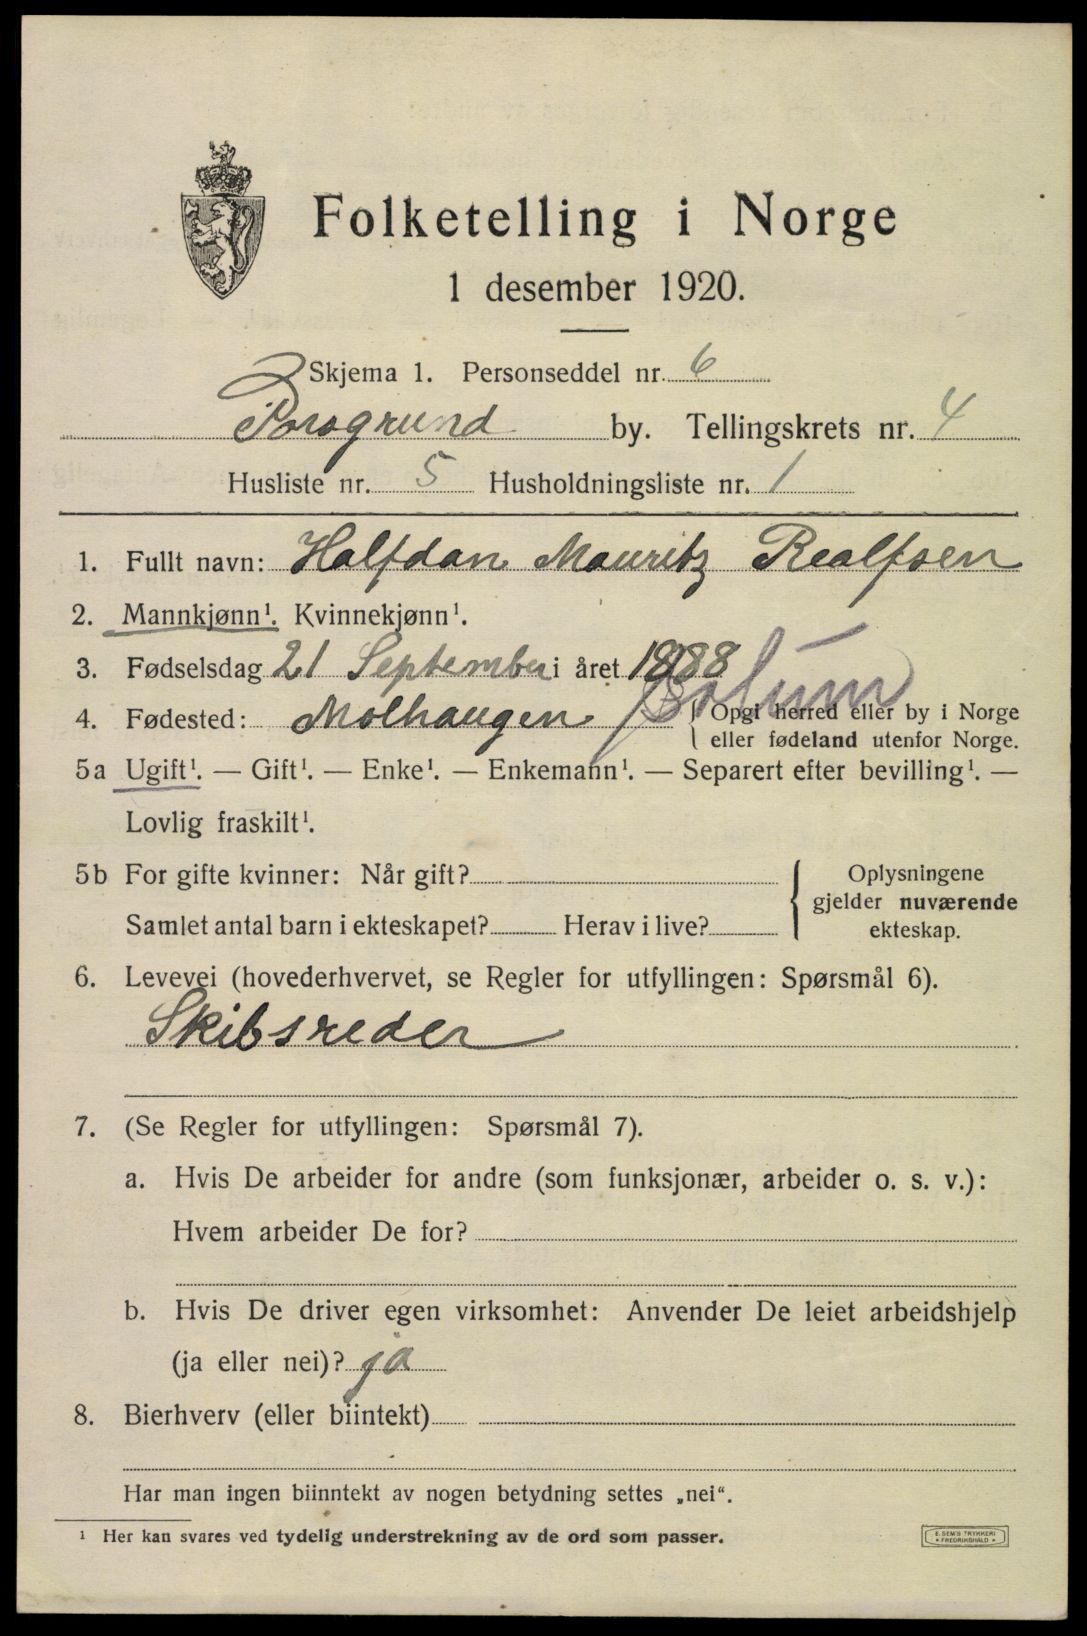 Folketelling i Norge
1 desember 1920.
Skjema 1. Personseddel nr. 6
Porsgrund by. Tellingskrets nr. 4
Husliste nr. 5 Husholdningsliste nr. 1
1. Fullt navn: Halfdan Mauritz Realfsen
2. Mannkjønn¹. Kvinnekjønn¹.
3. Fødselsdag 21 September i året 1888
4. Fødested: Molhaugen Solum { Opgi herred eller by i Norge
eller fødeland utenfor Norge.
5a Ugift¹. — Gift¹. — Enke¹. — Enkemann¹. — Separert efter bevilling¹. —
Lovlig fraskilt¹.
5b For gifte kvinner: Når gift? { Oplysningene
gjelder nuværende
Samlet antal barn i ekteskapet? Herav i live? ekteskap.
6. Levevei (hovederhvervet, se Regler for utfyllingen: Spørsmål 6).
Skibsreder
7. (Se Regler for utfyllingen: Spørsmål 7).
a. Hvis De arbeider for andre (som funksjonær, arbeider o. s. v.):
Hvem arbeider De for?
b. Hvis De driver egen virksomhet: Anvender De leiet arbeidshjelp
(ja eller nei)? ja
8. Bierhverv (eller biintekt)
Har man ingen biinntekt av nogen betydning settes „nei“.
¹ Her kan svares ved tydelig understrekning av de ord som passer.
E. SEM'S TRYKKERI
• FREDRIKSHALD •